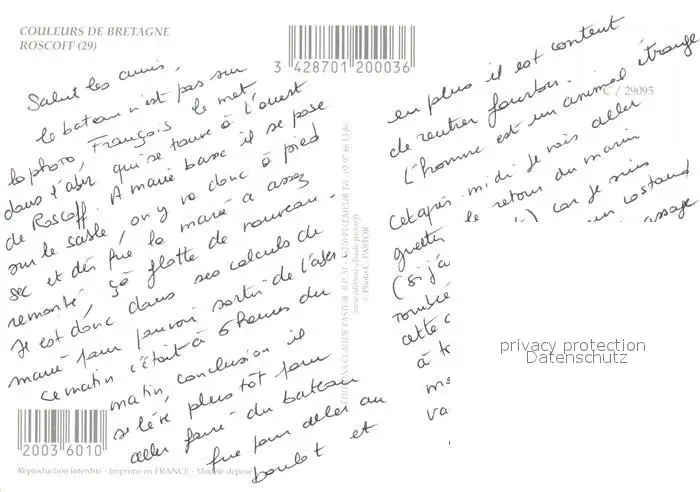 COULEURS DE BRETAGNE
ROSCOFF (29)
3 428701 200036
C / 29095
Salut les amis,
le bateau n'est pas sur
la photo, François le met
dans l'aber qui se trouve à l'ouest
de Roscoff. A marée basse il se pose
sur le sable, on y va donc à pied
sec et dès que la marée a assez
remonté, ça flotte de nouveau.
Il est donc dans ses calculs de
marée pour pouvoir sortir de l'aber
ce matin c'était à 6 heures du
matin, conclusion il
se lève plus tôt pour
aller faire du bateau
que pour aller au
boulot et
en plus il est content
de rentrer fourbu.
L'homme est un animal étrange
Cet après-midi je vais aller
guetter le retour du marin
(si j'a ) car je suis
tombé un costaud
cette passage
à t
m
va
EDITIONS CLAUDE PASTOR B.P. 51 PLŒMEUR Tél. 02 97 86 13 86
www.editions-claude-pastor.fr
© Photo C. PASTOR
privacy protection
Datenschutz
2003 6010
Reproduction Interdite - Imprimé en FRANCE - Modèle déposé